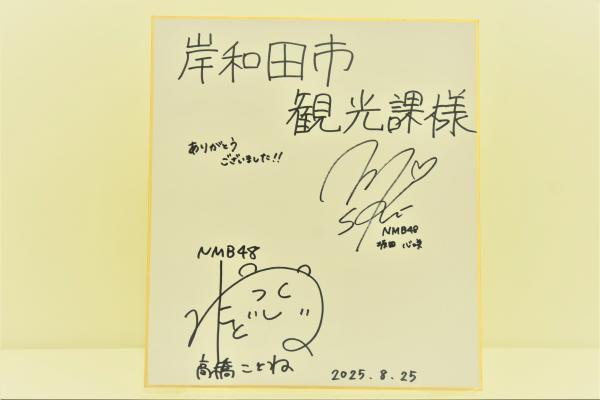 岸和田市
観光課様
ありがとう
ございました!!
NMB48
坂田 心咲
NMB48
高橋ことね
2025.8.25